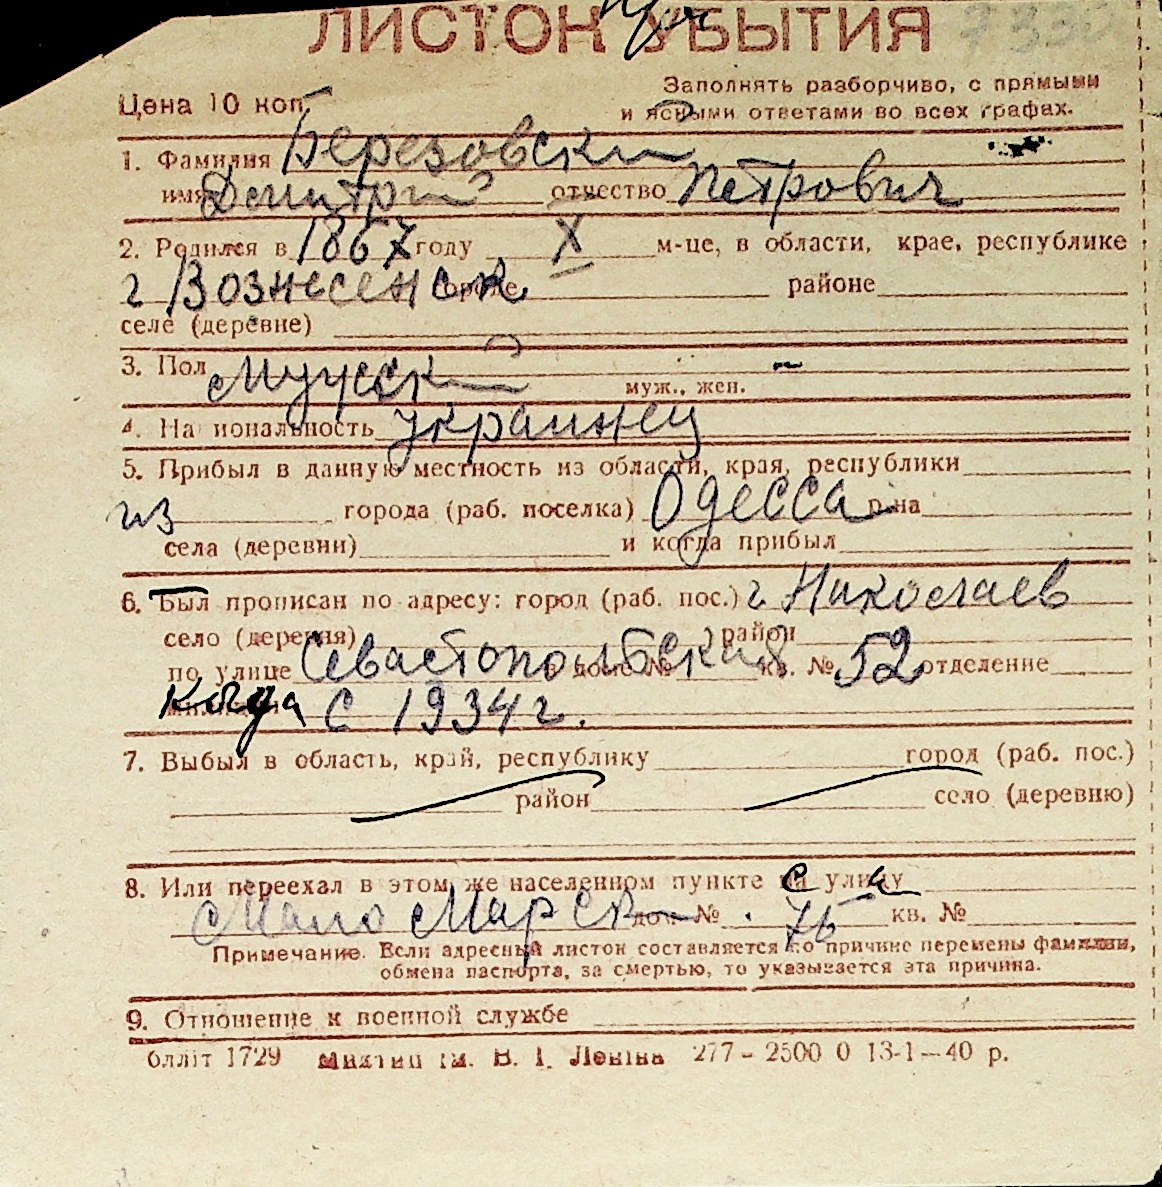 ЛИСТОК УБЫТИЯ
Цена 10 коп.
Заполнять разборчиво, с прямыми
и ясными ответами во всех графах.
1. Фамилия Березовский
имя Дмитрий отчество Петрович
2. Родился в 1867 году X м-це, в области, крае, республике
г Вознесенск городе районе
селе (деревне)
3. Пол Мужской муж., жен.
4. Национальность украинец
5. Прибыл в данную местность из области, края, республики
из города (раб. поселка) Одесса р-на
села (деревни) и когда прибыл
6. Был прописан по адресу: город (раб. пос.) г. Николаев
село (деревня) район
по улице Севастопольская дом № кв. № 52 отделение
милиции Когда С 1934 г.
7. Выбыл в область, край, республику город (раб. пос.)
район село (деревню)
8. Или переехал в этом же населенном пункте на улицу
Мало Морск дом № 76 кв. №
Примечание. Если адресный листок составляется по причине перемены фамилии,
обмена паспорта, за смертью, то указывается эта причина.
9. Отношение к военной службе
блліт 1729 ім. В. І. Леніна 277 - 2500 0 13-1—40 р.